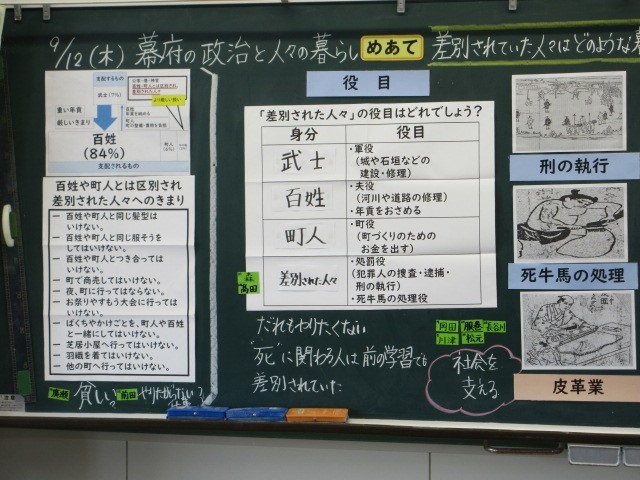 9/12(木) 幕府の政治と人々の暮らし
めあて
差別されていた人々はどのような
支配するもの
武士(7%)
重い年貢
厳しいきまり
百姓
(84%)
支配されるもの
百姓や町人とは区別され
差別された人々へのきまり
一 百姓や町人と同じ髪型は
いけない。
一 百姓や町人と同じ服そうを
してはいけない。
一 百姓や町人とつき合っては
いけない。
一 町で商売してはいけない。
一 夜、町に行ってはならない。
一 お祭りやすもう大会に行っては
いけない。
一 ばくちやかけごとを、町人や百姓
と一緒にしてはいけない。
一 芝居小屋へ行ってはいけない。
一 羽織を着てはいけない。
一 他の町へ行ってはいけない。
貧しい?
前田
やりたがらない?
仕事
役目
「差別された人々」の役目はどれでしょう?
身分 役目
武士
・軍役
(城や石垣などの
建設・修理)
百姓
・夫役
(河川や道路の修理)
・年貢をおさめる
町人
・町役
(町づくりのための
お金を出す)
差別された人々
・処罰役
(犯罪人の捜査・逮捕・
刑の執行)
・死牛馬の処理役
森
高田
だれもやりたくない
"死"に関わる人は前の学習でも
差別されていた
岡田
服巻
長谷川
川津
松元
社会を
支える
刑の執行
死牛馬の処理
皮革業